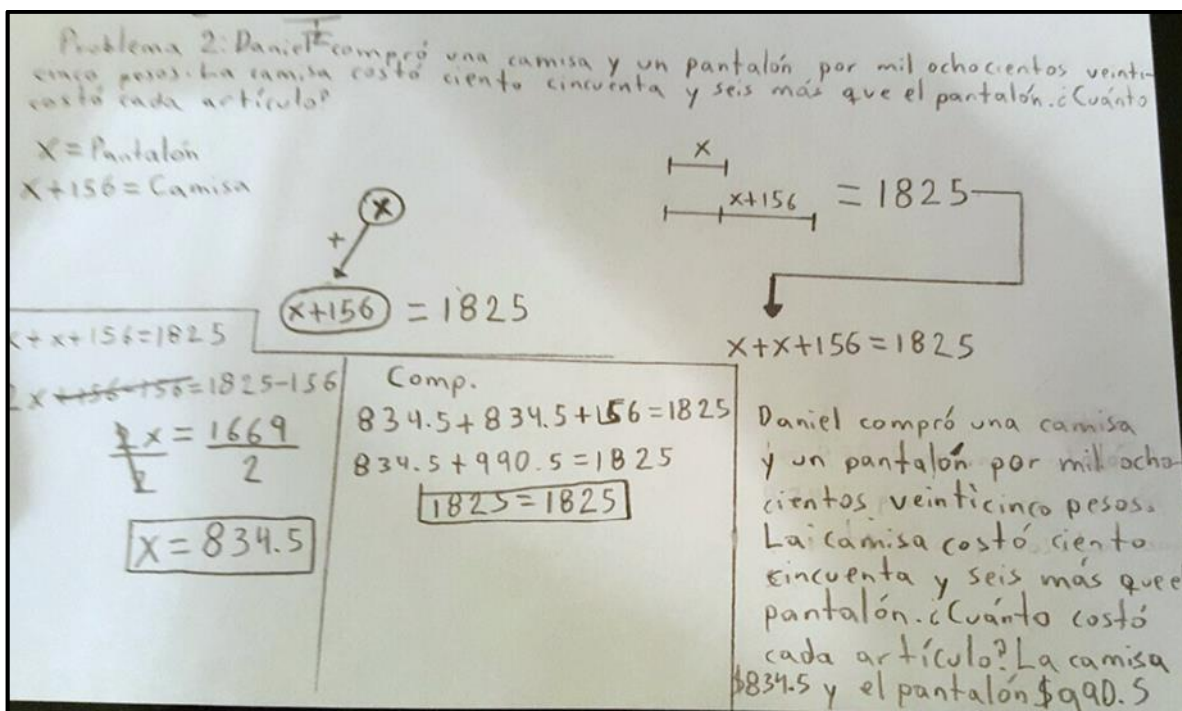 Problema 2: Daniel compró una camisa y un pantalón por mil ochocientos veinti-
cinco pesos. La camisa costó ciento cincuenta y seis más que el pantalón. ¿Cuánto
costó cada artículo?
X = Pantalón
X+156 = Camisa
x
+
x+156 = 1825
x
x+156 = 1825
x+x+156=1825
x+x+156=1825
2x +156-156=1825-156
2x = 1669
2 2
x = 834.5
Comp.
834.5+834.5+156=1825
834.5+990.5=1825
1825=1825
Daniel compró una camisa
y un pantalón por mil ocho-
cientos veinticinco pesos.
La camisa costó ciento
cincuenta y seis más que e
pantalón. ¿Cuánto costó
cada artículo? La camisa
$834.5 y el pantalón $990.5